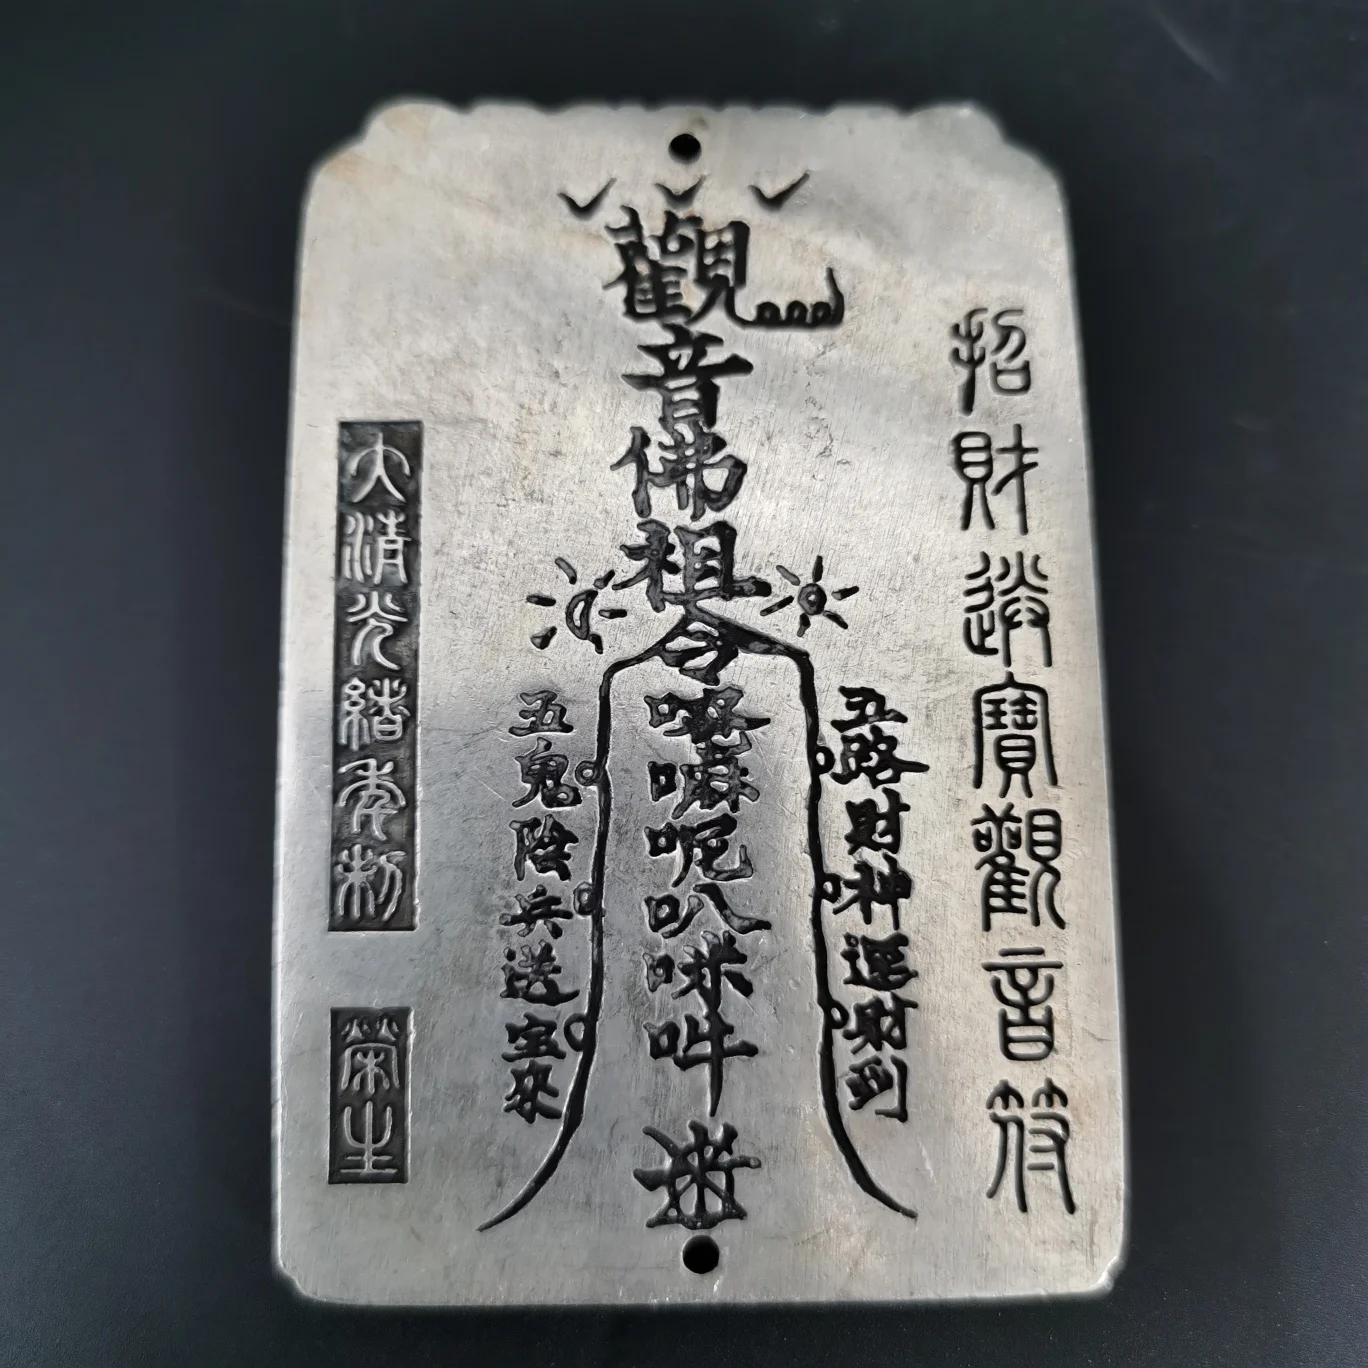 招財送寶觀音符
五路財神運財到
觀音佛祖令唵嘛呢叭咪吽
五鬼陰兵送宝來
大清光緒年制
榮生